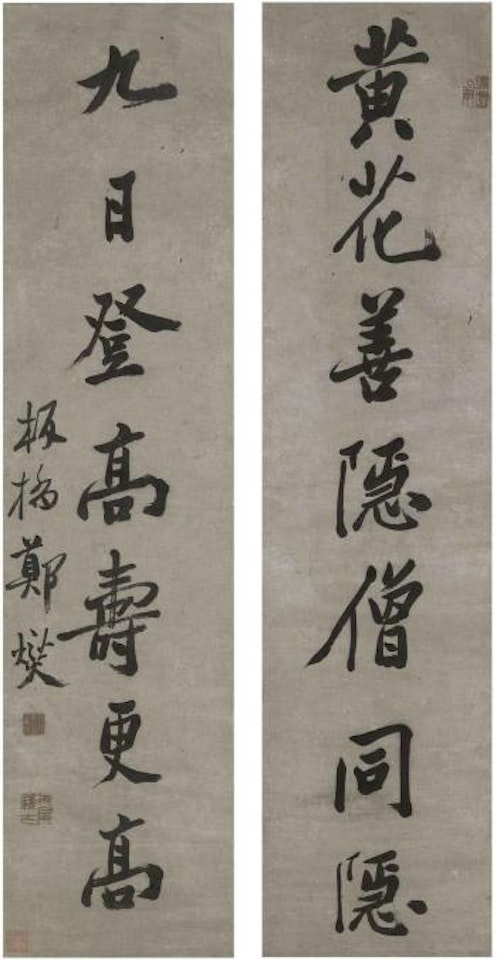 黄花善隐僧同隐
九日登高壽更高
板橋鄭燮